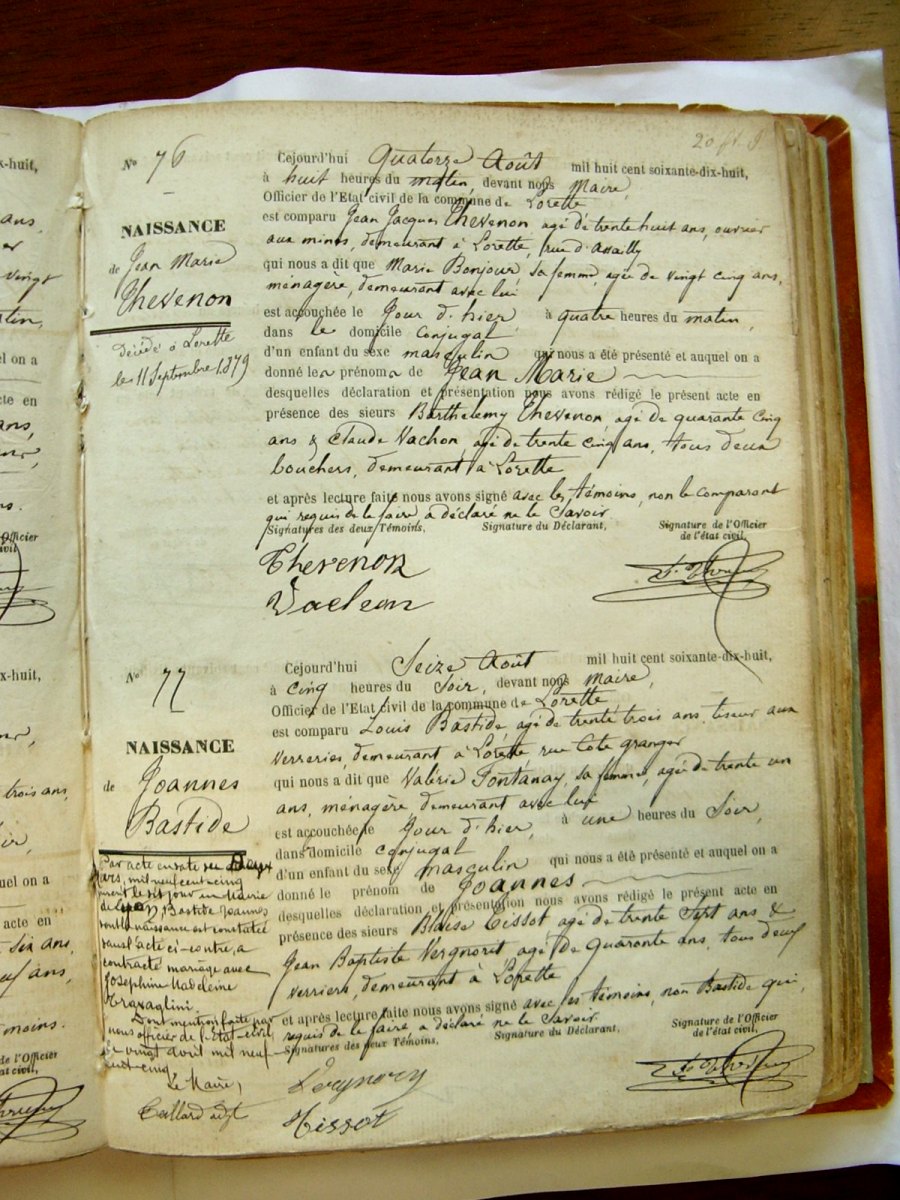 20 ft. 9
N° 76
NAISSANCE
de Jean Marie
Thevenon
décédé à Lorette
le 11 Septembre 1879
Cejourd'hui Quatorze Août mil huit cent soixante-dix-huit,
à huit heures du matin, devant nous Maire,
Officier de l'Etat civil de la commune de Lorette
est comparu Jean Jacques Thevenon agé de trente huit ans, ouvrier
aux mines, demeurant à Lorette, rue d'
qui nous a dit que Marie Bonjour, sa femme, agée de vingt cinq ans,
ménagère, demeurant avec lui
est accouchée le Jour d'hier à quatre heures du matin,
dans le domicile conjugal
d'un enfant du sexe masculin qui nous a été présenté et auquel on a
donné les prénoms de Jean Marie
desquelles déclaration et présentation nous avons rédigé le présent acte en
présence des sieurs Barthelemy Thevenon, agé de quarante cinq
ans & Claude Vachon, agé de trente cinq ans, tous deux
bouchers, demeurant à Lorette
et après lecture faite nous avons signé avec les témoins, non le comparant
qui requis de le faire a déclaré ne le Savoir
Signatures des deux Témoins, Signature du Déclarant, Signature de l'Officier
de l'état civil,
Thevenon
Vachon
N° 77
NAISSANCE
de Joannes
Bastide
Par acte en date du Deux
mars, mil neuf cent cinq
le dit jour en Mairie
de Lyon, Bastide Joannès
dont la naissance est constatée
dans l'acte ci-contre, a
contracté mariage avec
Josephine Madeleine
Travaglini.
Dont mention faite par
nous officier de l'état-civil,
le vingt avril mil neuf
cent cinq.
Le Maire,
Cejourd'hui Seize Août mil huit cent soixante-dix-huit,
à cinq heures du Soir, devant nous Maire,
Officier de l'Etat civil de la commune de Lorette
est comparu Louis Bastide agé de trente trois ans, tiseur aux
Verreries, demeurant à Lorette, rue Côte granger
qui nous a dit que Valérie Fontanay, sa femme, agée de trente un
ans, ménagère demeurant avec lui
est accouchée le Jour d'hier, à une heures du Soir,
dans domicile conjugal
d'un enfant du sexe masculin qui nous a été présenté et auquel on a
donné le prénom de Joannes
desquelles déclaration et présentation nous avons rédigé le présent acte en
présence des sieurs Blaise Tissot agé de trente Sept ans &
Jean Baptiste Vergnory, agé de Quarante ans, tous deux
Verriers, demeurant à Lorette
et après lecture faite nous avons signé avec les témoins, non Bastide qui,
requis de le faire a déclaré ne le Savoir
Signatures des deux Témoins, Signature du Déclarant, Signature de l'Officier
de l'état civil,
Vergnory
Tissot